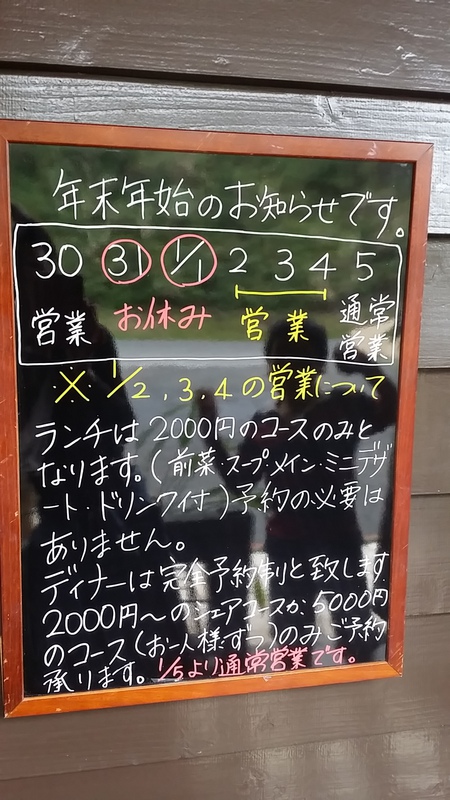 年末年始のお知らせです。
30 31 1/1 2 3 4 5
営業 お休み 営業 通常営業
※ 1/2.3.4の営業について
ランチは2000円のコースのみと
なります。(前菜・スープ・メイン・ミニデザ
ート・ドリンク付)予約の必要は
ありません。
ディナーは完全予約制と致します
2000円〜のシェアコースか、5000円
のコース(お一人様ずつ)のみご予約
承ります。1/5より通常営業です。